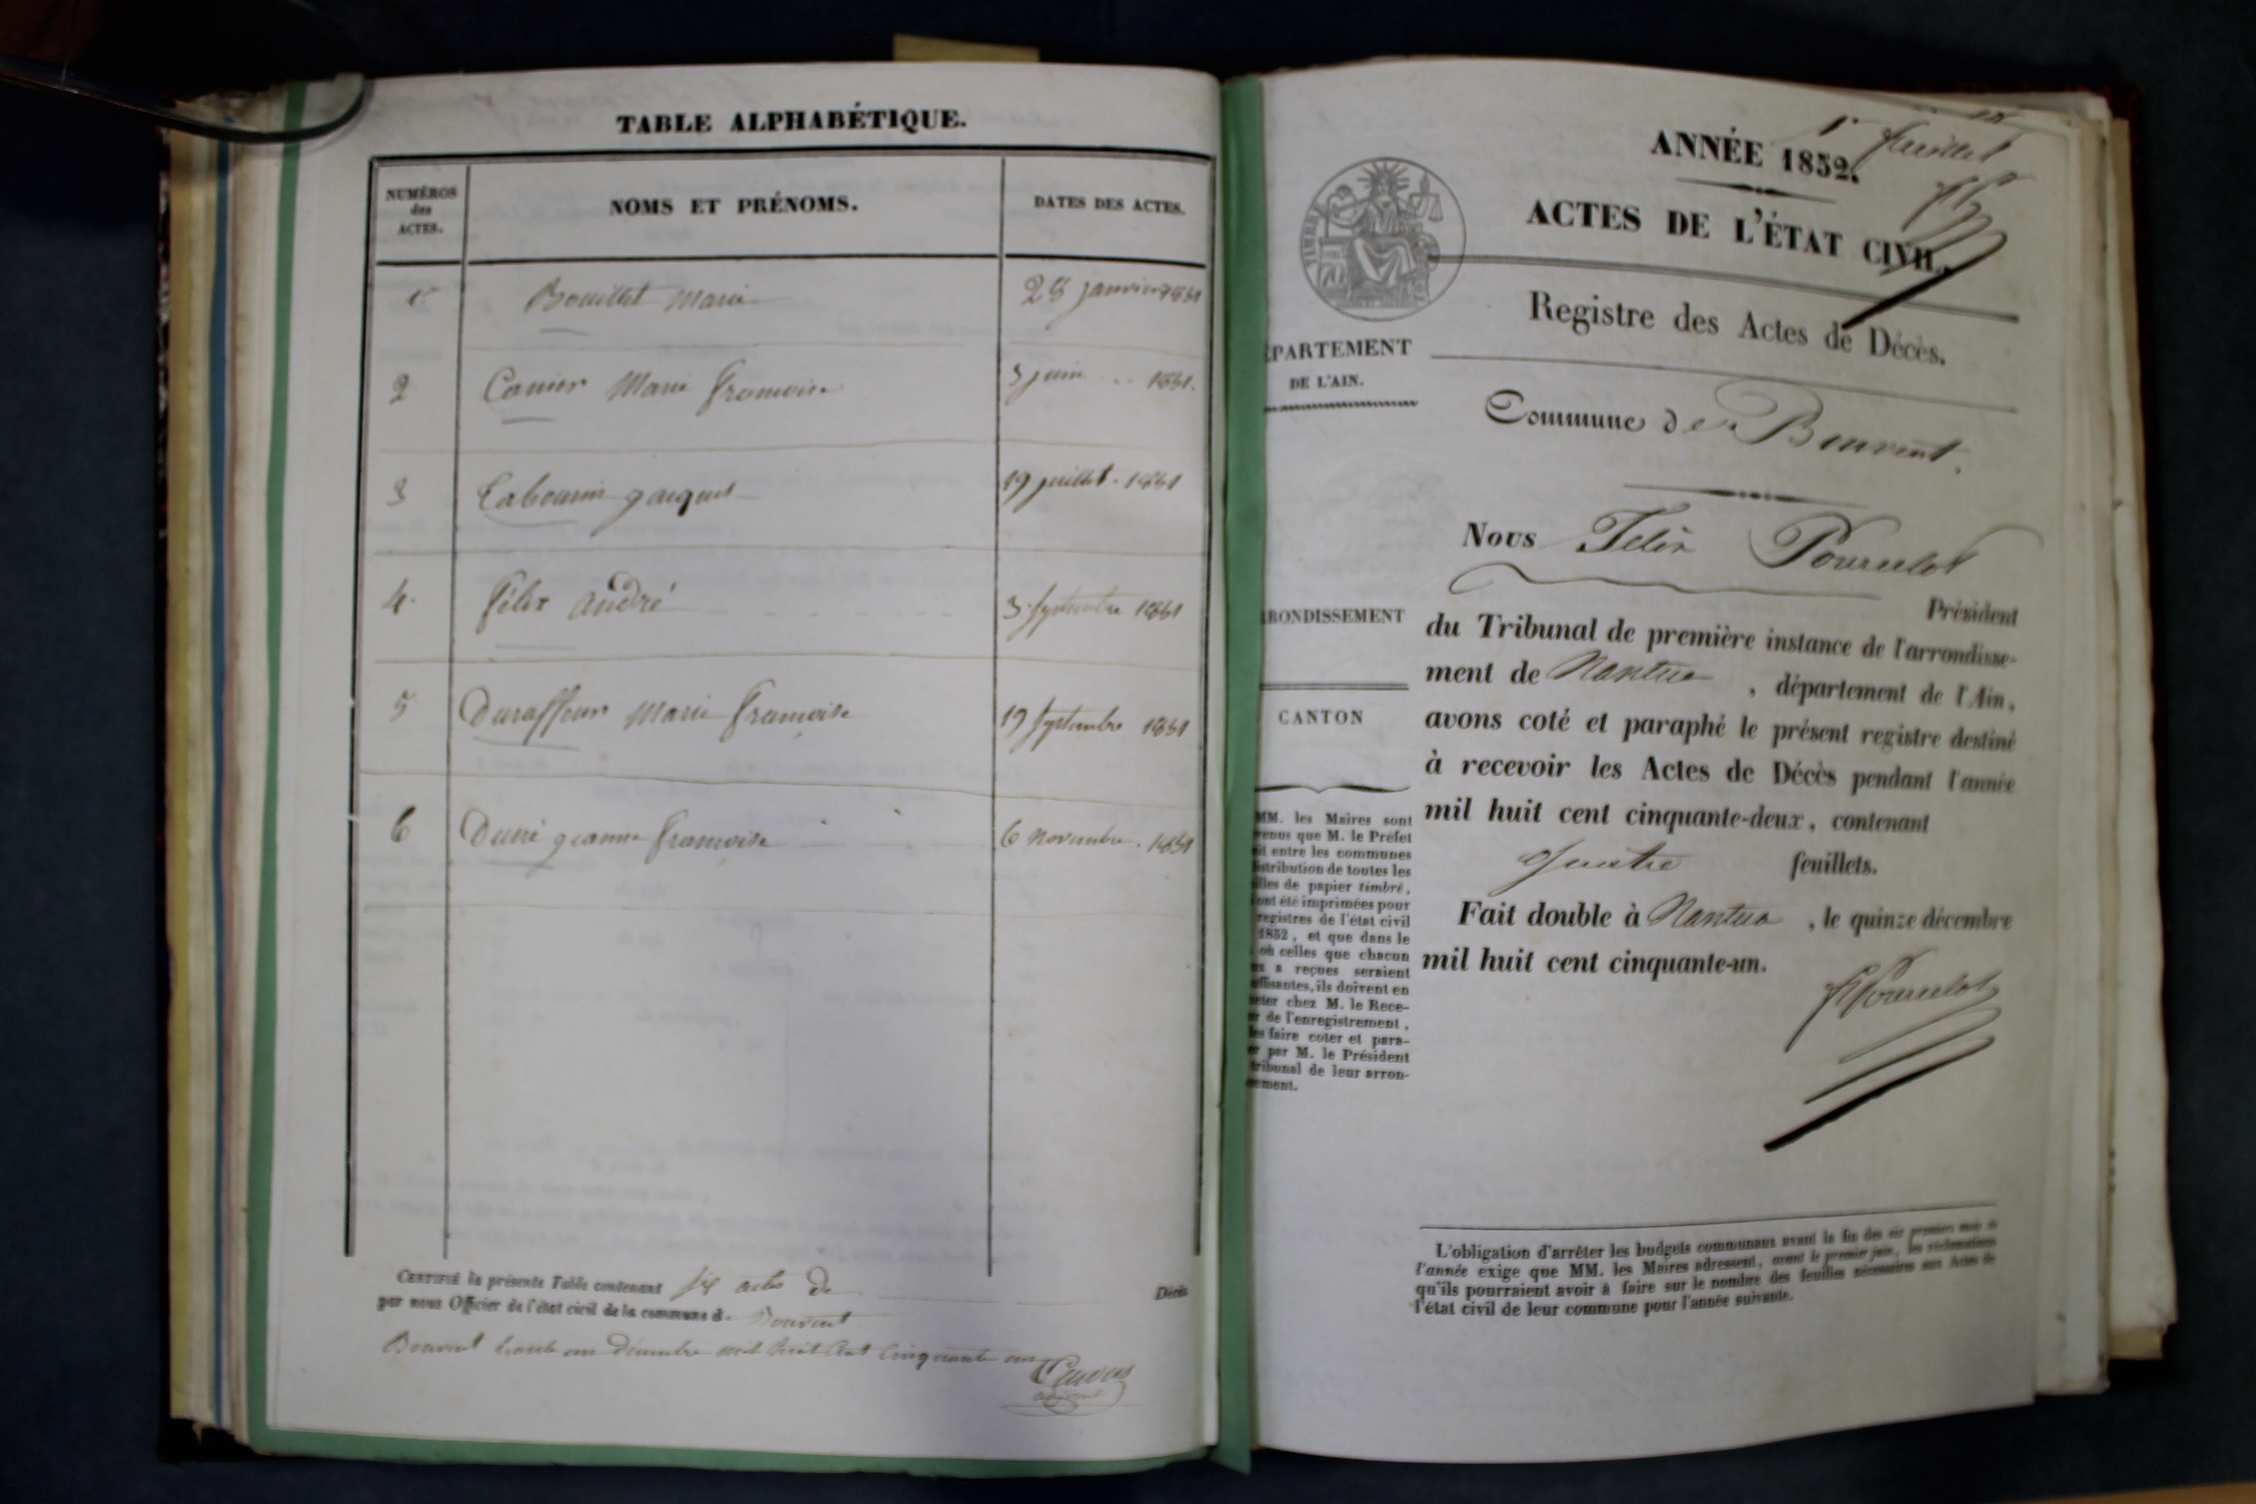 TABLE ALPHABÉTIQUE.
NUMÉROS
des
ACTES.
NOMS ET PRÉNOMS.
DATES DES ACTES.
1er Bouillet Marie 28 janvier 1851
2 Marie françoise 3 juin 1851.
3 19 juillet. 1851
4. félix andré 3 septembre 1851
5 Duraffour Marie françoise 19 septembre 1851
6 jeanne françoise 6 novembre. 1851
CERTIFIÉ la présente Table contenant six actes de Décès
par nous Officier de l'état civil de la commune de Bouvent
Bouvent trente un décembre mil huit cent cinquante un
adjoint
1er feuillet
ANNÉE 1852.
ACTES DE L'ÉTAT CIVIL.
TIMBRE
Registre des Actes de Décès.
PARTEMENT
DE L'AIN.
Commune de Bouvent.
Nous Félix Pourcelot
Président
RONDISSEMENT
du Tribunal de première instance de l'arrondisse-
ment de Nantua, département de l'Ain,
avons coté et paraphé le présent registre destiné
à recevoir les Actes de Décès pendant l'année
mil huit cent cinquante-deux, contenant
quatre feuillets.
Fait double à Nantua, le quinze décembre
mil huit cent cinquante-un.
Pourcelot
CANTON
MM. les Maires sont
venus que M. le Préfet
it entre les communes
stribution de toutes les
lles de papier timbré,
ont été imprimées pour
registres de l'état civil
1852, et que dans le
où celles que chacun
a reçues seraient
ffisantes, ils doivent en
eter chez M. le Rece-
r de l'enregistrement,
les faire coter et para-
er par M. le Président
tribunal de leur arron-
ement.
L'obligation d'arrêter les budgets communaux avant la fin des six premiers mois de
l'année exige que MM. les Maires adressent, avant le premier juin, les réclamations
qu'ils pourraient avoir à faire sur le nombre des feuilles nécessaires aux Actes de
l'état civil de leur commune pour l'année suivante.